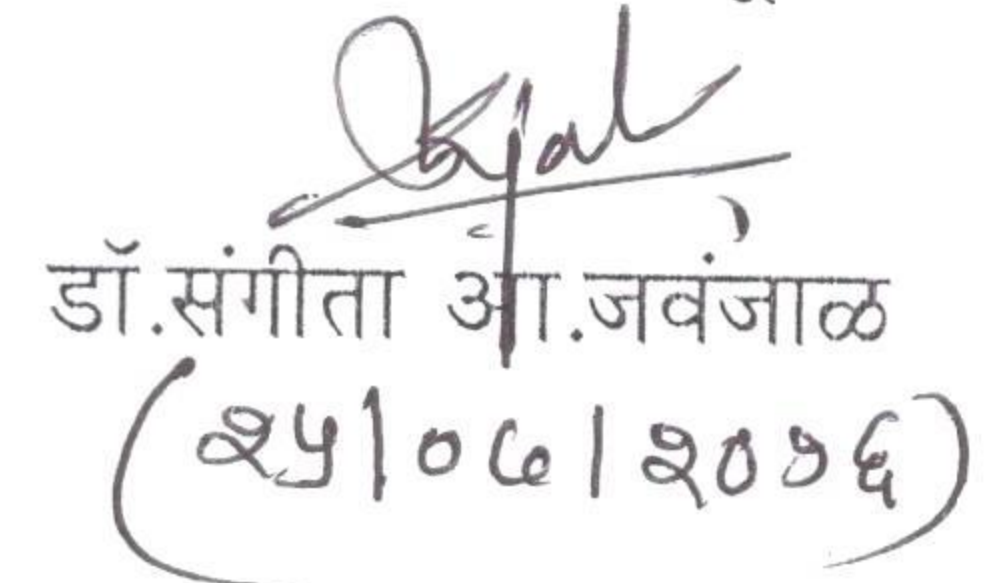 डॉ.संगीता आ.जवंजाळ
(२५/०७/२०१६)